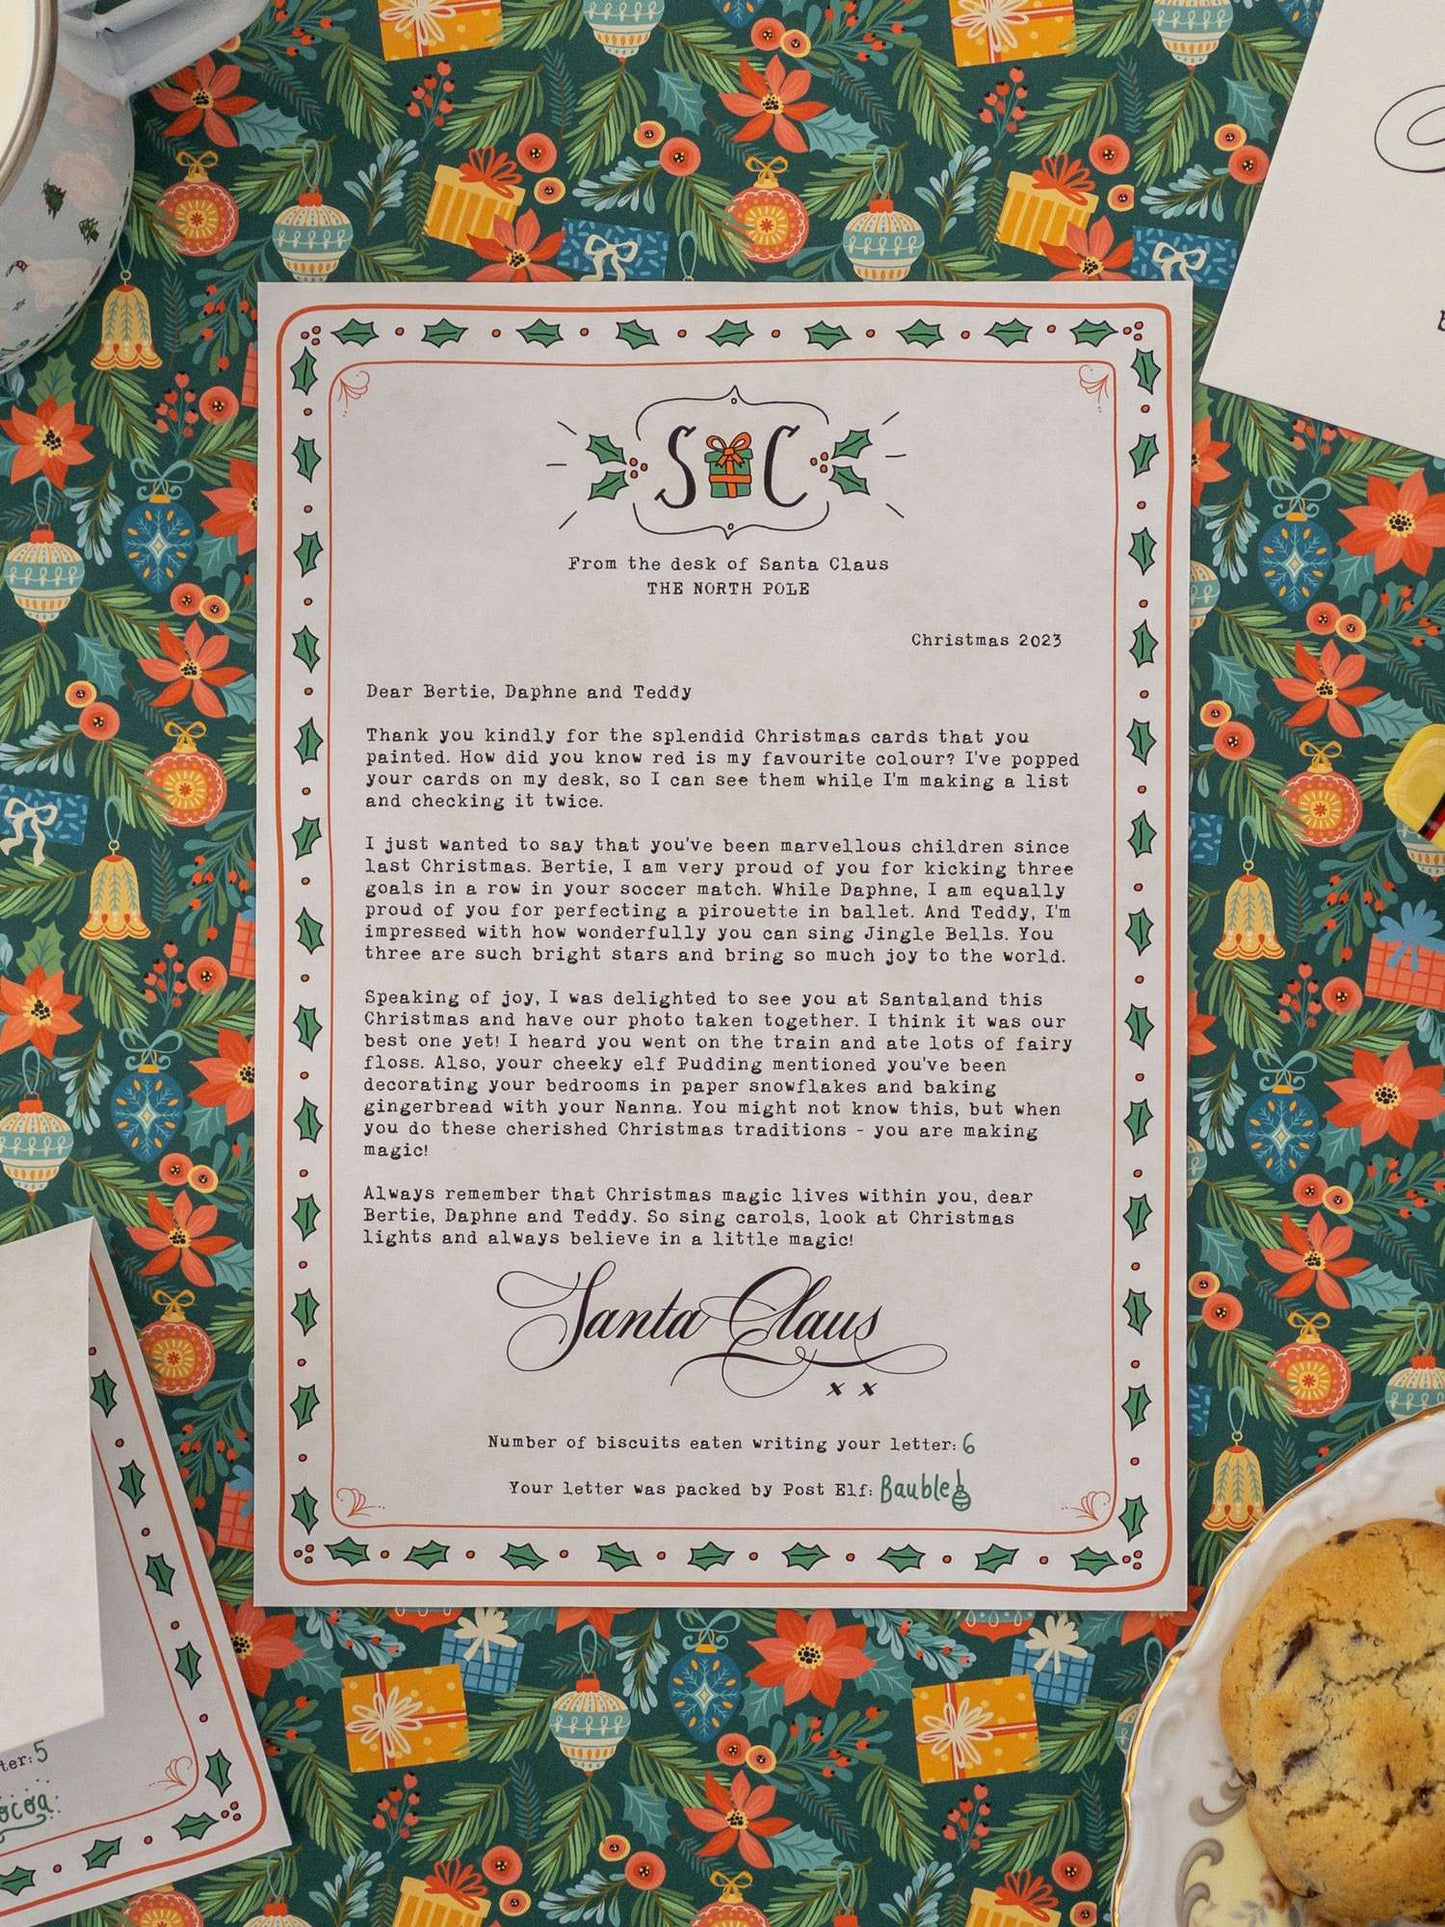 S C
From the desk of Santa Claus
THE NORTH POLE
Christmas 2023
Dear Bertie, Daphne and Teddy
Thank you kindly for the splendid Christmas cards that you
painted. How did you know red is my favourite colour? I've popped
your cards on my desk, so I can see them while I'm making a list
and checking it twice.
I just wanted to say that you've been marvellous children since
last Christmas. Bertie, I am very proud of you for kicking three
goals in a row in your soccer match. While Daphne, I am equally
proud of you for perfecting a pirouette in ballet. And Teddy, I'm
impressed with how wonderfully you can sing Jingle Bells. You
three are such bright stars and bring so much joy to the world.
Speaking of joy, I was delighted to see you at Santaland this
Christmas and have our photo taken together. I think it was our
best one yet! I heard you went on the train and ate lots of fairy
floss. Also, your cheeky elf Pudding mentioned you've been
decorating your bedrooms in paper snowflakes and baking
gingerbread with your Nanna. You might not know this, but when
you do these cherished Christmas traditions - you are making
magic!
Always remember that Christmas magic lives within you, dear
Bertie, Daphne and Teddy. So sing carols, look at Christmas
lights and always believe in a little magic!
Santa Claus
x x
Number of biscuits eaten writing your letter: 6
Your letter was packed by Post Elf: Bauble
ter: 5
ocoa